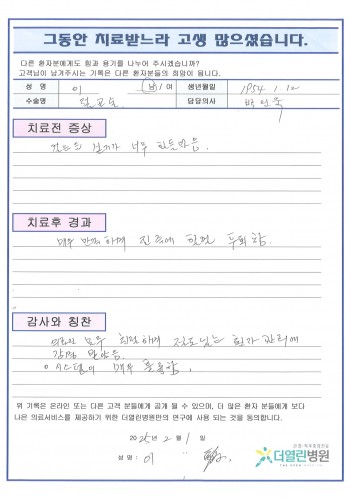 그동안 치료받느라 고생 많으셨습니다.
다른 환자분에게도 힘과 용기를 나누어 주시겠습니까?
고객님이 남겨주시는 기록은 다른 환자분들의 희망이 됩니다.
성 명 이 남/여 생년월일 1954. 1. 12
수술명 담당의사
치료전 증상
걷는 너무 힘들었음
치료후 경과
매우 만족하게 함
감사와 칭찬
모두 친절하게 환자 관리에
감동 받았음
시스템이 매우 훌륭함
위 기록은 온라인 또는 다른 고객 분들에게 공개 될 수 있으며, 더 많은 환자 분들에게 보다
나은 의료서비스를 제공하기 위한 더열린병원만의 연구에 사용 되는 것을 동의합니다.
2025년 2월 1일
성 명 : 이
더열린병원